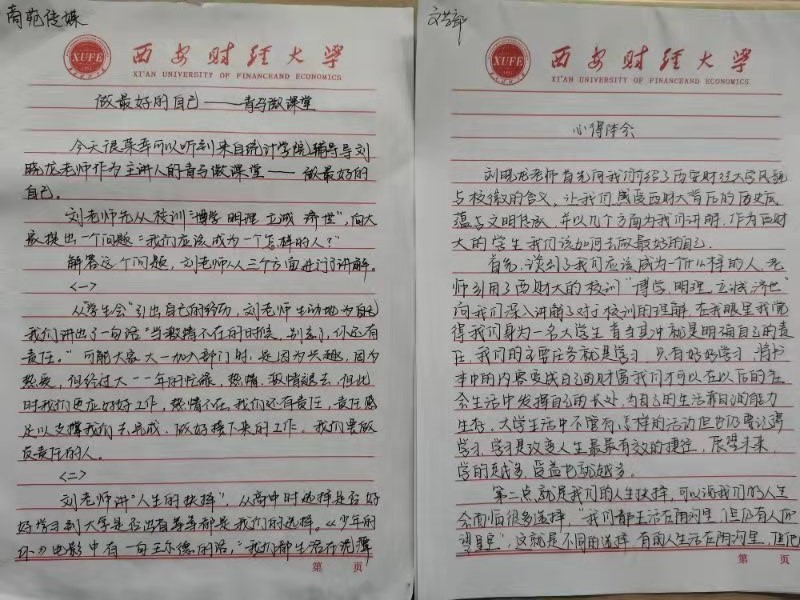 商苑传媒
XUFE
西安财经大学
XI'AN UNIVERSITY OF FINANCE AND ECONOMICS
做最好的自己——青马微课堂
今天很荣幸可以听到来自统计学院辅导导刘
晓龙老师作为主讲人的青马微课堂——做最好的
自己。
刘老师先从校训“博学 明理 立诚 济世”,向大
家提出一个问题:“我们应该成为一个怎样的人?”
解答这个问题,刘老师从三个方面进行了讲解。
<一>
从“学生会”引出自己的经历,刘老师生动地为自己
我们讲出了一句话“当激情不在的时候,别忘了,你还有
责任。”可能大家大一加入部门时,是因为兴趣,因为
热爱,但经过大一一年的忙碌,热情、激情退去,但此
时我们更应好好工作,热情不在,我们还有责任,责任感
足以支撑我们去完成、做好接下来的工作,我们要做
负责任的人。
<二>
刘老师讲“人生的抉择”,从高中时选择是否好
好学习到大学是否沿着善等都是我们的选择。《少年的
你》电影中有一句王尔德的话,“我们都生活在泥潭
第 页
文艺部
XUFE
西安财经大学
XI'AN UNIVERSITY OF FINANCE AND ECONOMICS
心得体会
刘晓龙老师首先向我们介绍了西安财经大学风貌
与校徽的含义,让我们感受西财大背后的历史底
蕴与文明传成,并以几个方面为我们讲解,作为西财
大的学生我们该如何去做最好的自己。
首先,谈到了我们应该成为一个什么样的人,老
师引用了西财大的校训“博学,明理,立诚,济世”
向我们深入讲解了对于校训的理解,在我眼里我觉
得我们身为一名大学生首当其冲就是明确自己的责
任,我们的主要任务就是学习,只有好好学习,将书
本中的内容变成自己的财富我们才可以在以后的社
会生活中发挥自己的长处,为自己的生活靠自己的能力
生存,大学生活中不管有怎样的活动但也仍要记得
学习,学习是改变人生最最有效的捷径,展望未来,
学的越多,受益也就越多。
第二点就是我们的人生抉择,可以说我们的人生
会面临很多选择,“我们都生活在阴沟里,但仍有人仰
望星空”,这就是不同的选择,有的人生活在阴沟里,但他
第 页